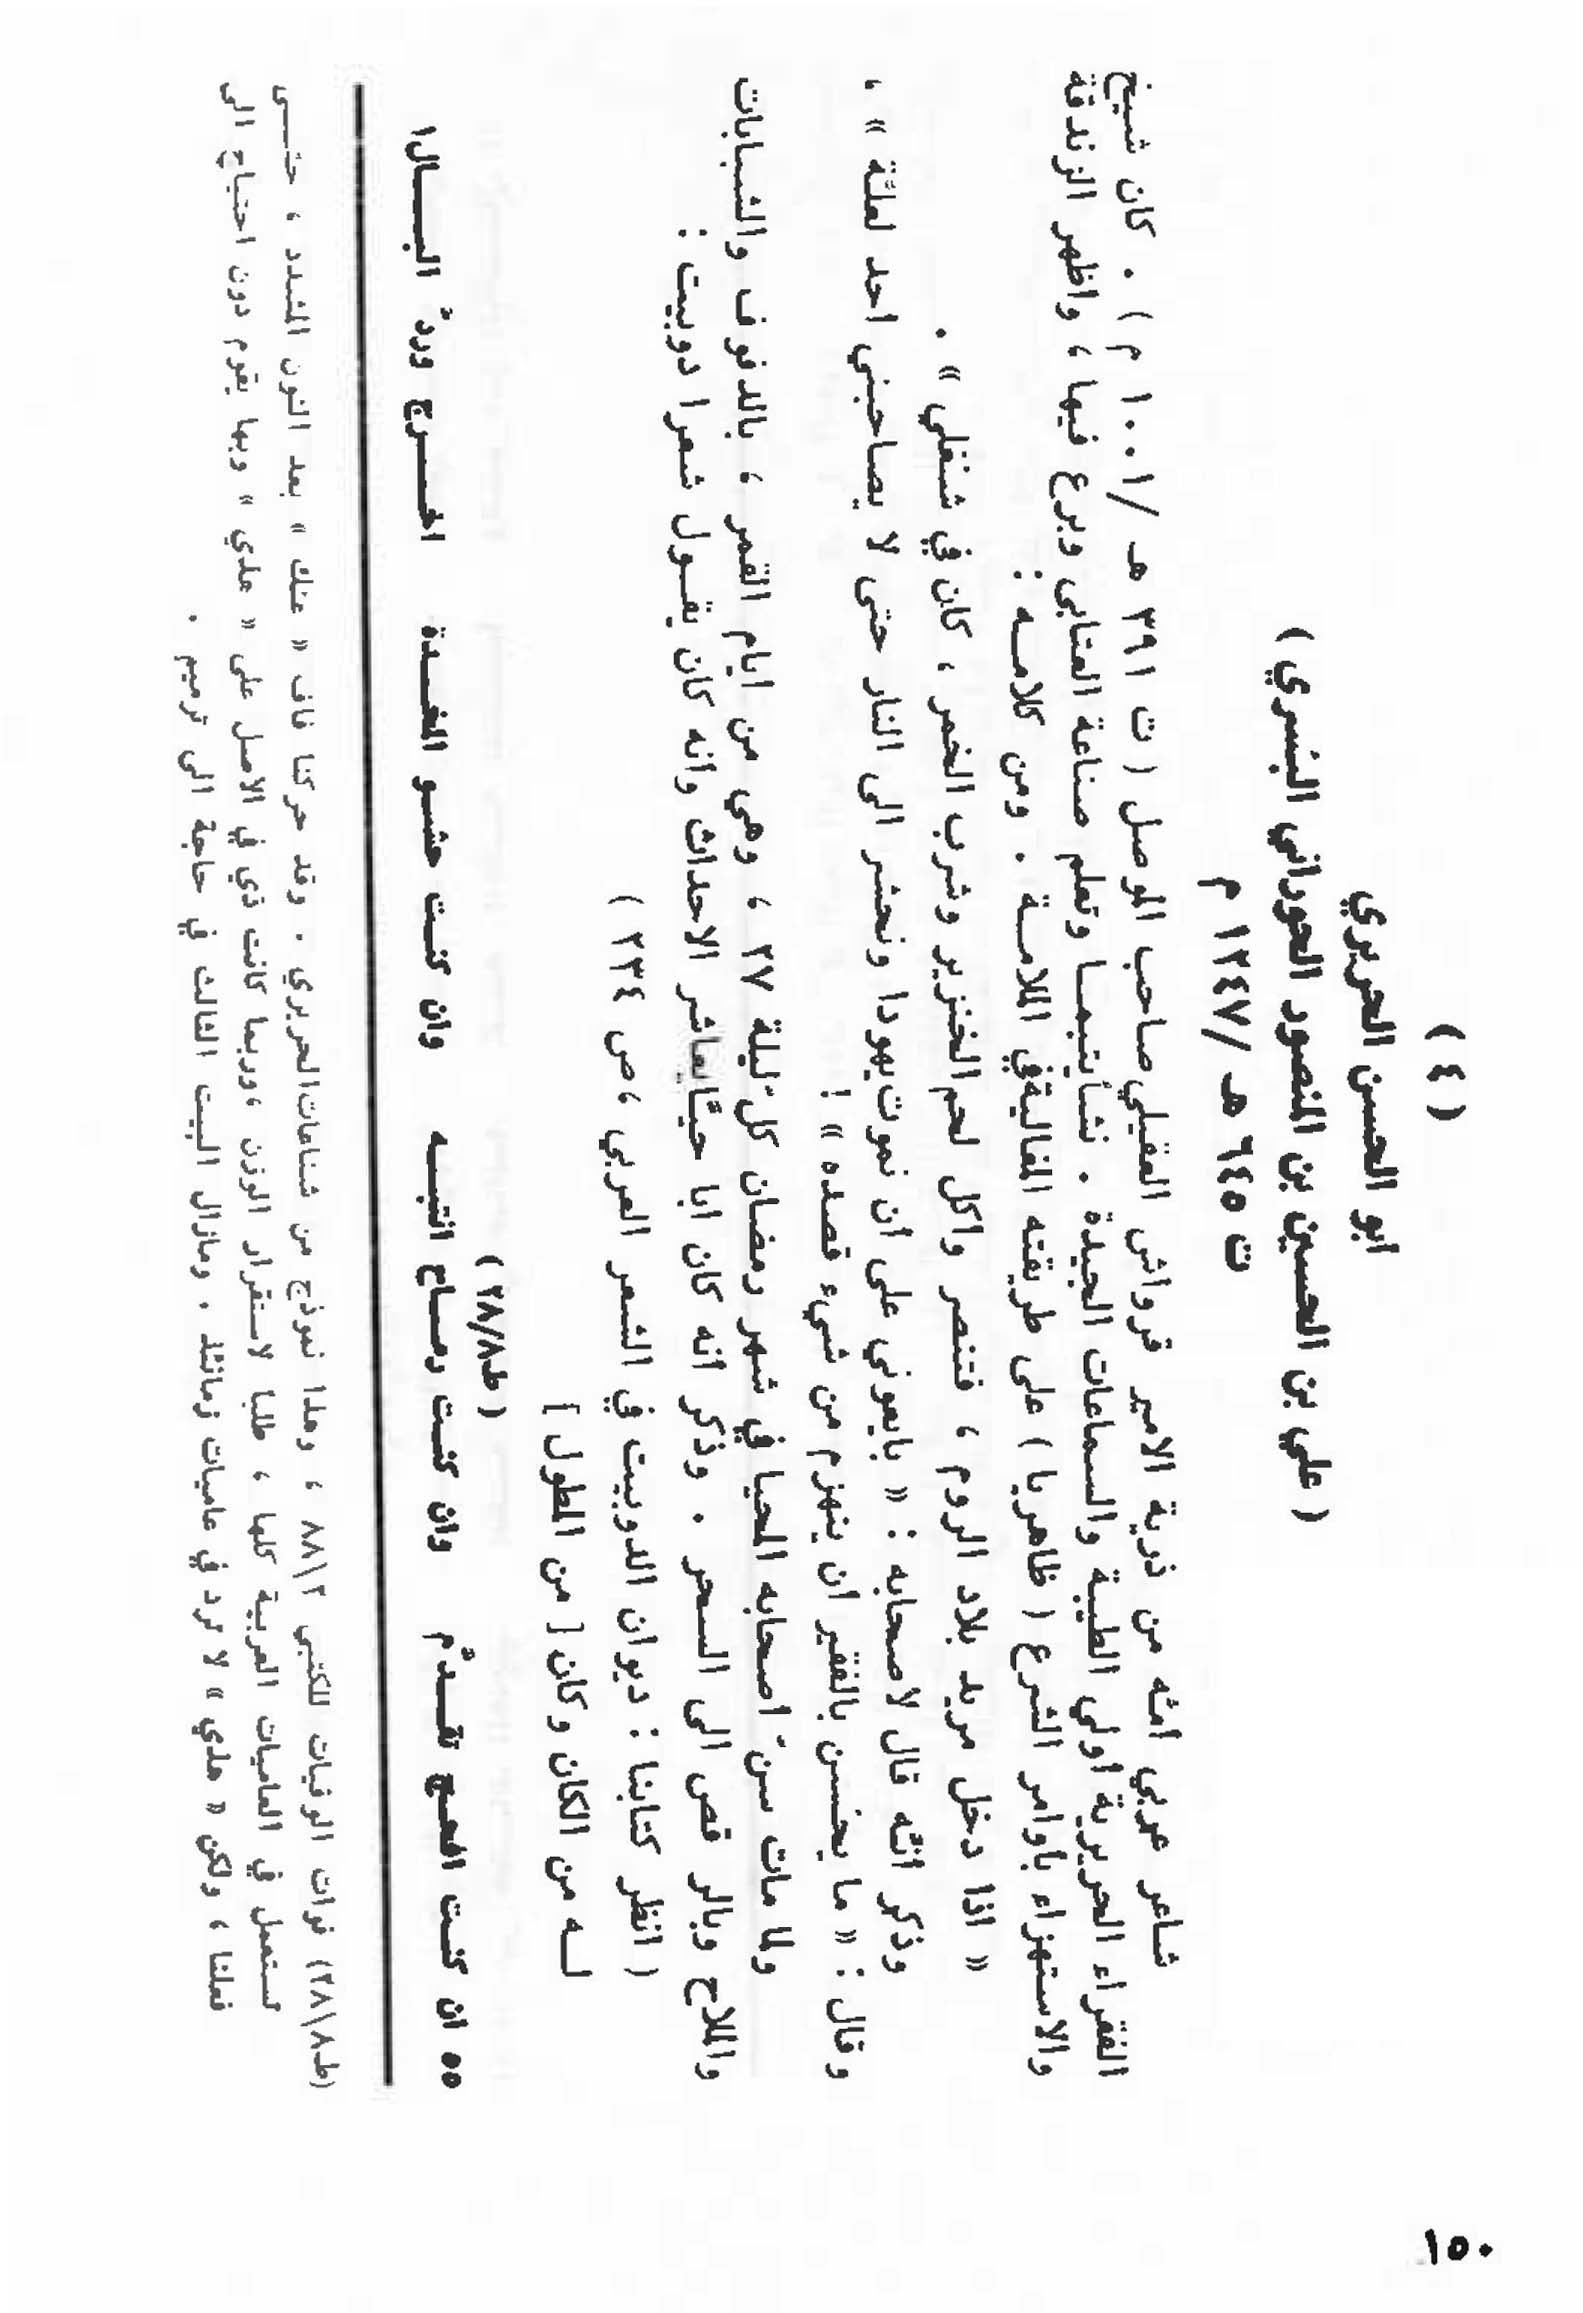 ١٥٠
( ٤ )
ابو الحسن الحريري
( علي بن الحسين بن المنصور الحوراني البُسري )
ت ٦٤٥ هـ /١٢٤٧ م
شاعر عربي امّه من ذرية الامير قرواش العقيلي صاحب الموصل ( ت ٣٩١ هـ /١٠٠١ م ) . كان شيخ
الفقراء الحريرية اولي الطيبة والسماعات الجيدة . نشأ يتيمــا وتعلم صناعة العتابى وبرع فيها ، واظهر الزندقة
والاستهزاء باوامر الشرع ( ظاهريا ) على طريقته المغالية في الملامــة . ومن كلامــه :
« اذا دخل مريد بلاد الروم ، فتنصر واكل لحم الخنزير وشرب الخمر ، كان في شغلي » .
وذكر انّه قال لاصحابه : « بايعوني على ان نموت يهودا ونحشر الى النار حتى لا يصاحبني احد لعلّة » ،
وقال : « ما يحسن بالفقير ان ينهزم من شيء قصده » !
ولما مات سنّ اصحابه المحيا في شهر رمضان كلّ ليلة ٢٧ ، وهي من ايام القمر ، بالدفوف والشبابات
والملاح وبالرقص الى السحر . وذكر انه كان ابا حيّا يعاشر الاحداث وانه كان يقــول شعرا دوبيت :
( انظر كتابنا : ديوان الدوبيت في الشعر العربي ، ص ٢٣٤ )
لــه من الكان وكان [ من المطول ]
( ط٢٨/٨ )
٥٥ ان كنــت افحــج تقــدَّم وان كنــت رمــاح انتبــه وان كنــت حشــو المخــدة اخــــرج وردّ البــــال١
(ط٢٨/٨) فوات الوفيات للكتبي ٨٨/٢ ، وهذا نموذج من شناعات الحريري . وقد حركنا فاف « عنك » بعد النون المشدد ، حتــى
تستعمل في العاميات العربية كلها ، طلبا لاستقرار الوزن ، وربما كانت ذي في الاصل على « هذي » وبها يقوم دون احتياج الى
فعلنا ، ولكن « هذي » لا ترد في عاميات زمانئذ . ومازال البيت الثالث في حاجة الى ترميم .